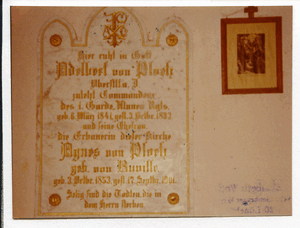 Hier ruht in Gott
Adelbert von Ploetz
Oberstlt. a. D.
zuletzt Commandeur
des 1. Garde, Ulanen Rgts.
geb. 6. März 1841, gest. 3. Octbr. 1892
und seine Ehefrau
die Erbauerin dieser Kirche
Agnes von Ploetz
geb. von
geb. 3. Octbr. 1853, gest. 17. Septbr.
Selig sind die Todten, die in
dem Herrn sterben.